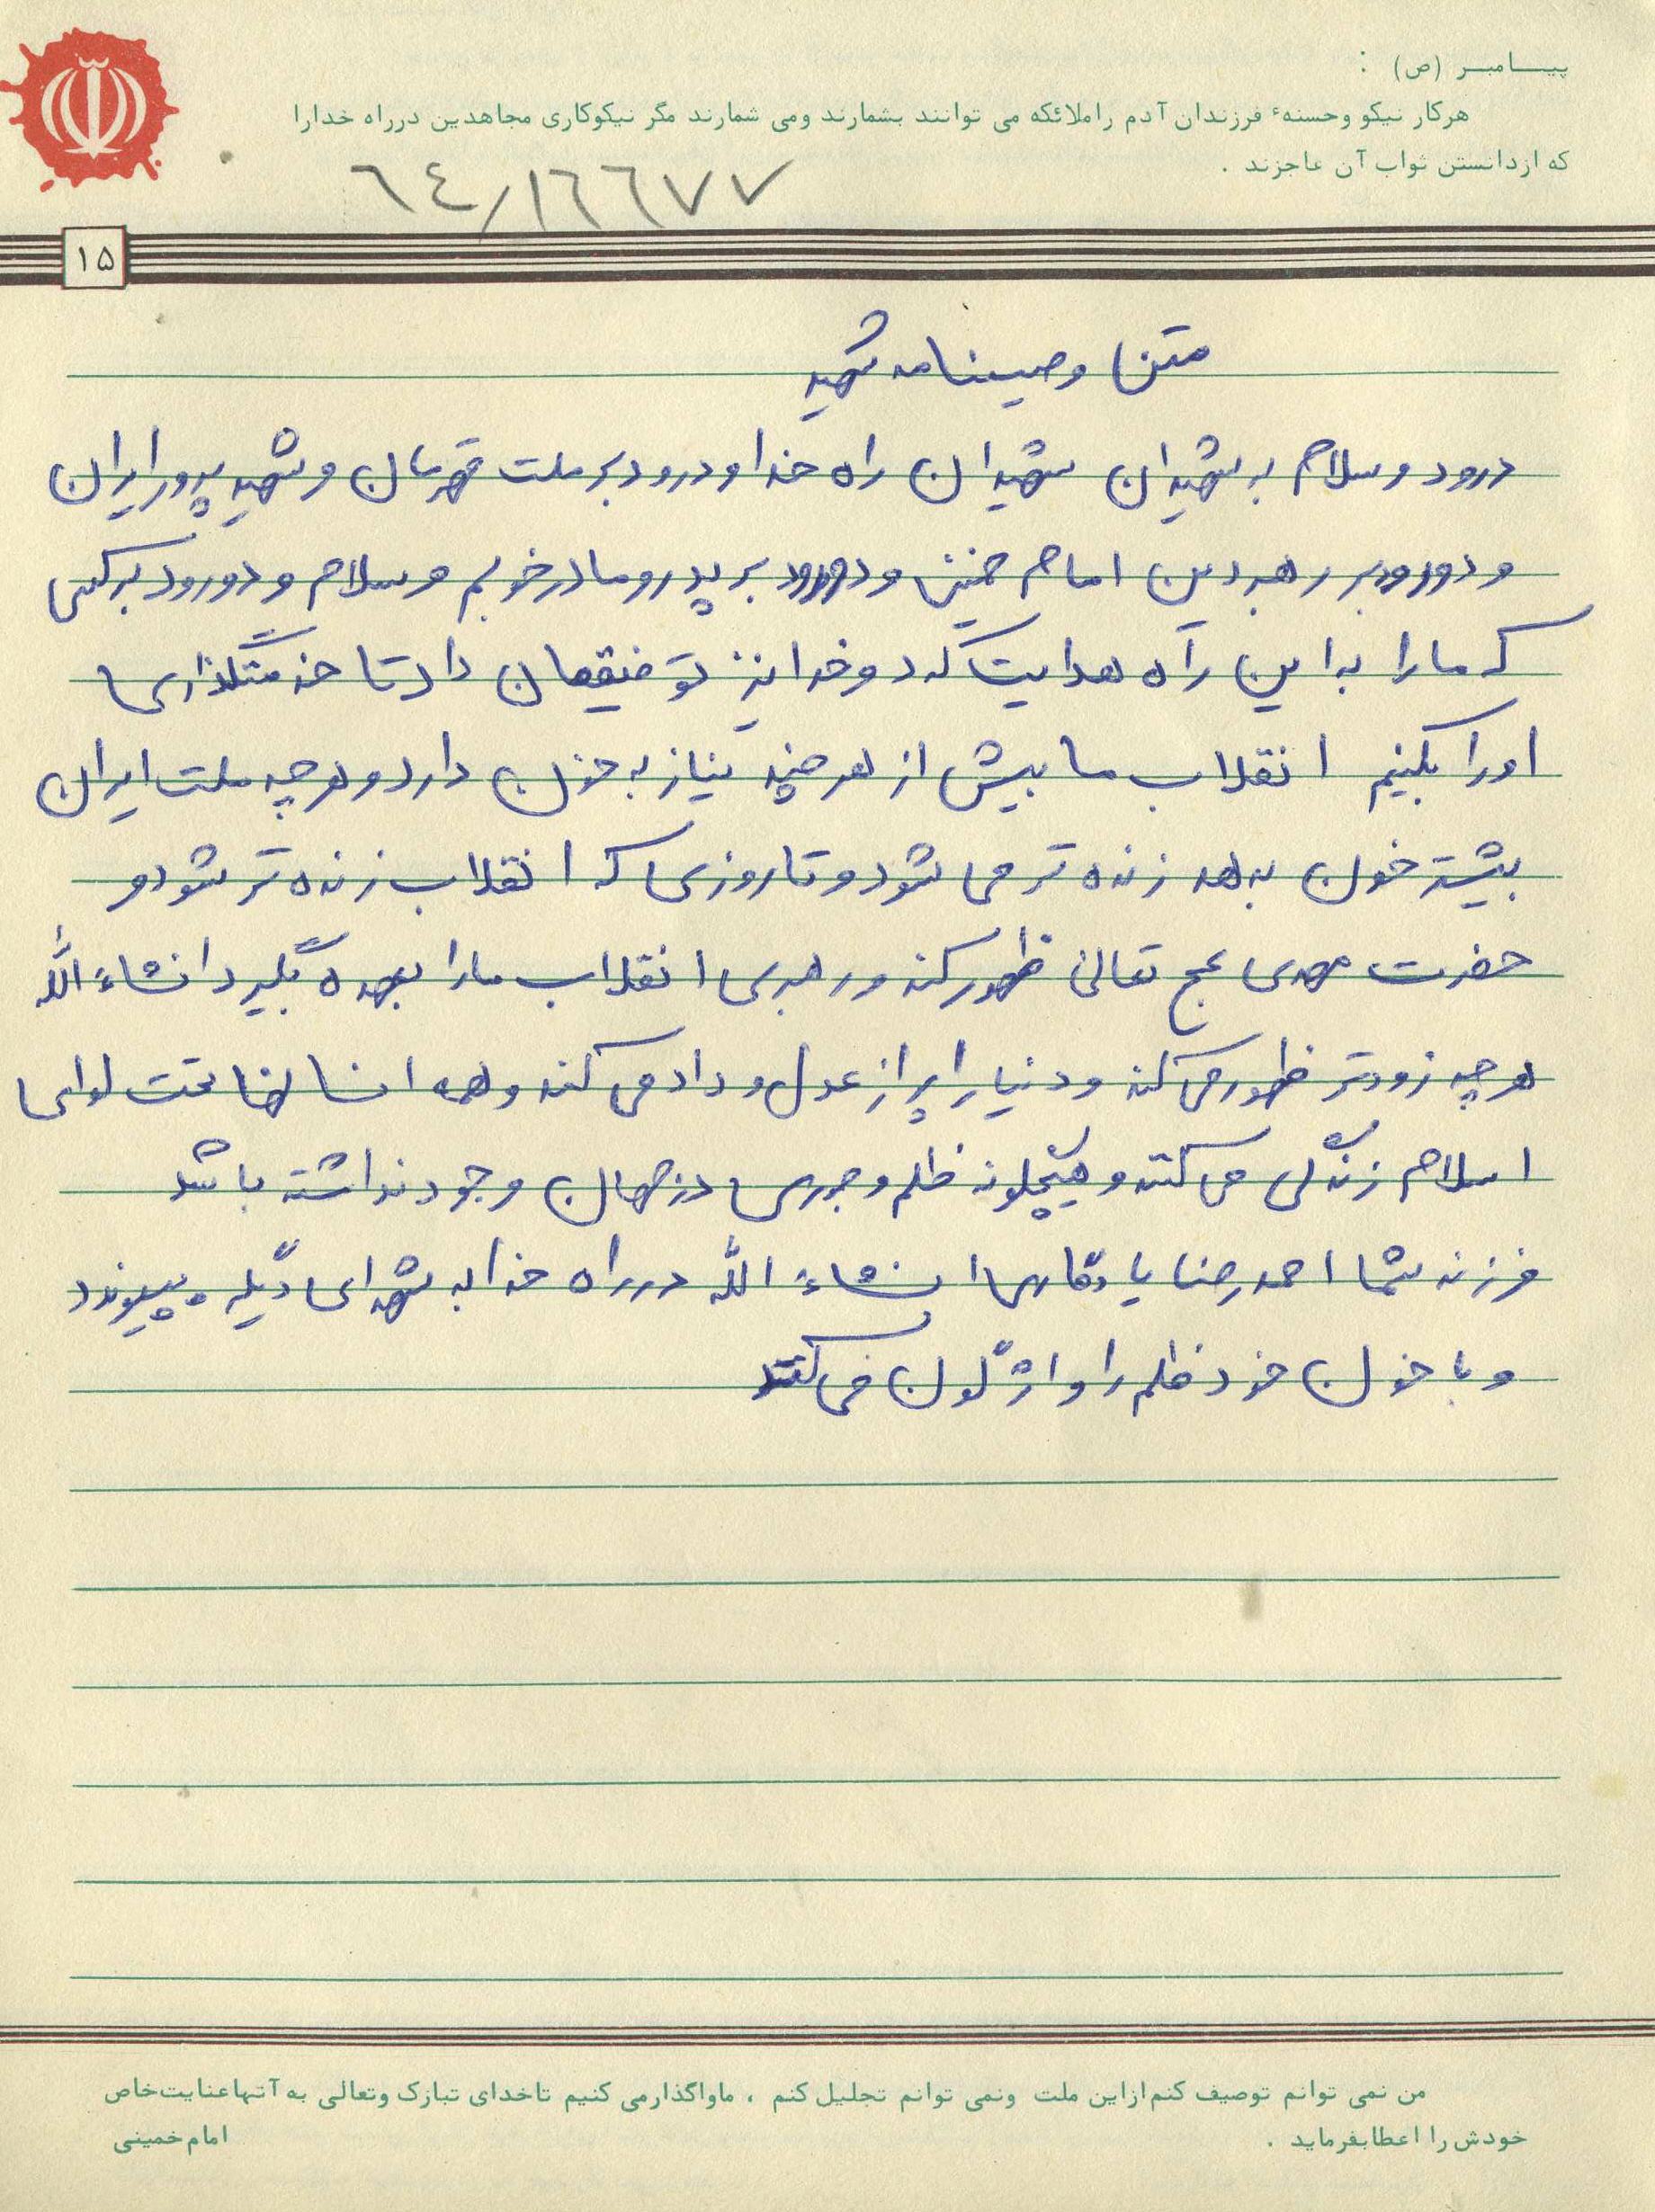 پیامبر (ص) :
هرکار نیکو وحسنهٔ فرزندان آدم راملائکه می توانند بشمارند ومی شمارند مگر نیکوکاری مجاهدین درراه خدارا
که ازدانستن ثواب آن عاجزند .
٦٤/١٦٦٧٧
۱۵
متن وصیتنامه شهید
درود و سلام به شهیدان شهیدان راه خدا و درود بر ملت قهرمان و شهید پرور ایران
و دورود بر رهبر دین امام خمینی و دورود بر پدر و مادر خوبم و سلام و دورود بر کسی
که ما را به این راه هدایت کرد و خدا نیز توفیقمان داد تا خدمتگذاری
او را بکنیم انقلاب ما بیش از هر چیز نیاز به خون دارد و هر چه ملت ایران
بیشتر خون بدهد زنده تر می شود و تا روزی که انقلاب زنده تر شود و
حضرت مهدی عج تعالی ظهور کند و رهبری انقلاب ما را بعهده بگیرد انشاءالله
هر چه زودتر ظهور می کند و دنیا را پر از عدل و داد می کند و همه انسانها تحت لوای
اسلام زندگی می کنند و هیچگونه ظلم و جوری در جهان وجود نداشته باشد
فرزند شما احمدرضا یادگاری انشاءالله در راه خدا به شهدای دیگر بپیوندد
و با خون خود ظلم را واژگون می کنند
من نمی توانم توصیف کنم ازاین ملت ونمی توانم تجلیل کنم ، ماواگذارمی کنیم تاخدای تبارک وتعالی به آنهاعنایت خاص
خودش را اعطابفرماید .
امام خمینی